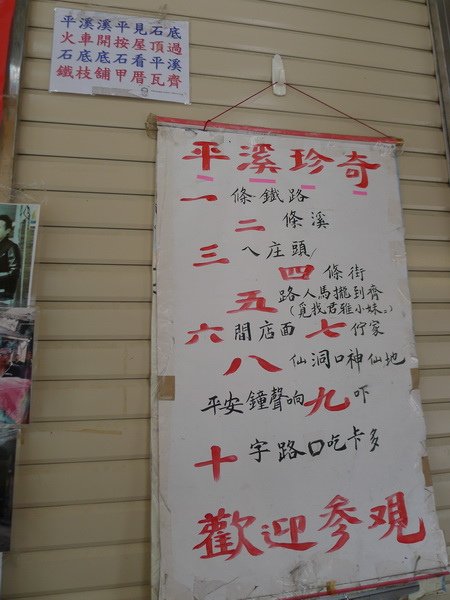 平溪溪平見石底
火車開按屋頂過
石底底石看平溪
鐵枝舖甲厝瓦齊
平溪珍奇
一條鐵路
二條溪
三八庄頭
四條街
五路人馬攏到齊
(覓找君雅小妹。)
六間店面七佇家
八仙洞口神仙地
平安鐘聲响九吓
十字路口吃卡多
歡迎參观